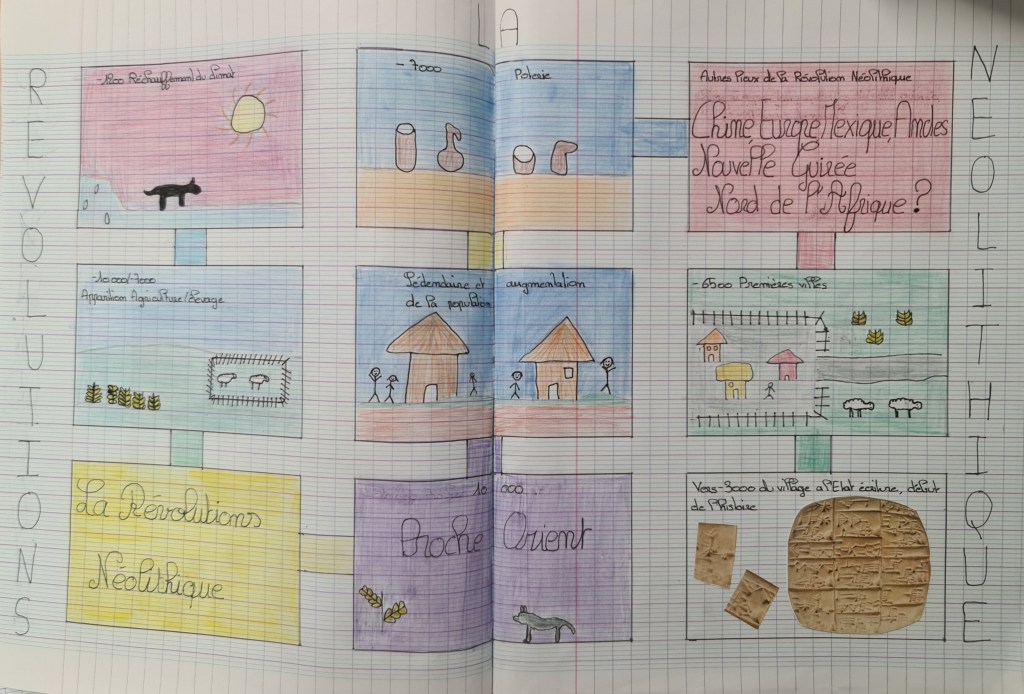 LA
REVOLUTIONS
-1200 Réchauffement du climat
-7000 Poterie
Autres lieux de la Révolution Néolithique
Chine, Europe, Mexique, Andes
Nouvelle Guinée
Nord de l'Afrique ?
-10 000/-7000
Apparition Agriculture/Elevage
Sédentaire et augmentation
de la population
-6500 Premières villes
La Révolutions
Néolithique
10 000
Proche Orient
Vers -3000 du village a l'Etat écriture, début
de l'histoire
NEOLITHIQUE